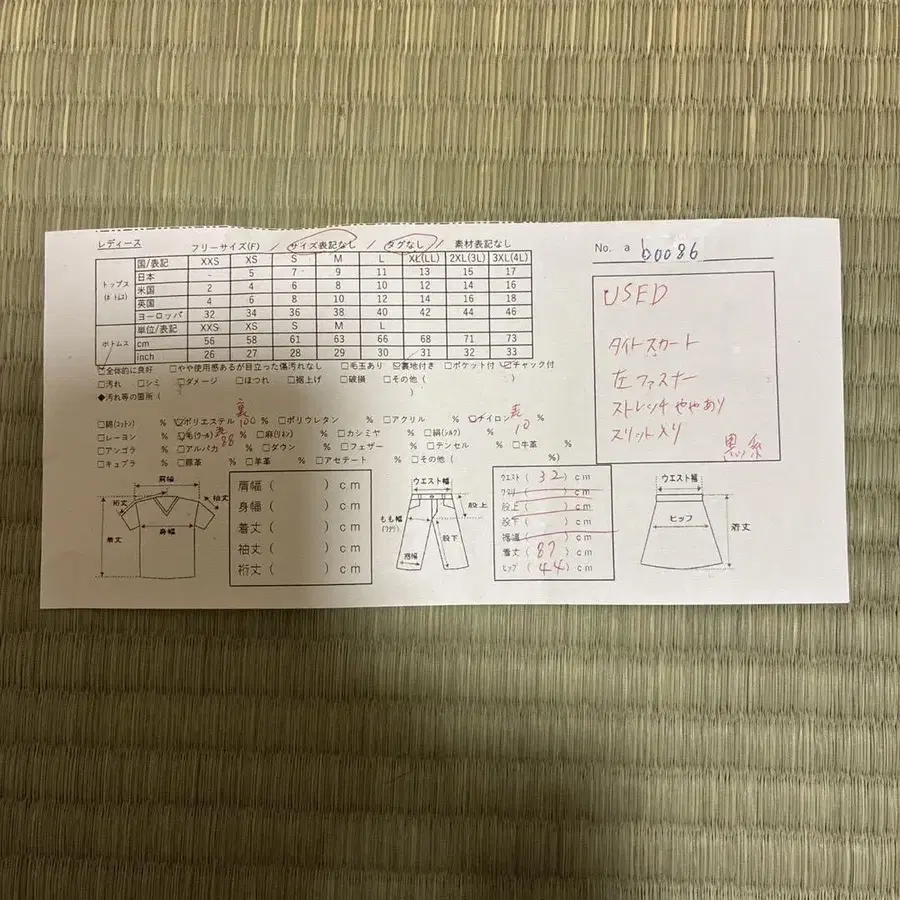 レディース フリーサイズ(F) / サイズ表記なし / タグなし / 素材表記なし
No. a b0086
トップス
(ボトムス)
国/表記 XXS XS S M L XL(LL) 2XL(3L) 3XL(4L)
日本 - 5 7 9 11 13 15 17
米国 2 4 6 8 10 12 14 16
英国 4 6 8 10 12 14 16 18
ヨーロッパ 32 34 36 38 40 42 44 46
ボトムス
単位/表記 XXS XS S M L
cm 56 58 61 63 66 68 71 73
inch 26 27 28 29 30 31 32 33
☑全体的に良好 □やや使用感あるが目立った傷汚れなし □毛玉あり ☑裏地付き □ポケット付 ☑チャック付
□汚れ □シミ □ダメージ □ほつれ □裾上げ □破損 □その他 ( )
◆汚れ等の箇所 ( )
□綿(コットン) % ☑ポリエステル 裏100 % □ポリウレタン % □アクリル % ☑ナイロン 表10 %
□レーヨン % ☑毛(ウール) 表 % □麻(リネン) % □カシミヤ % □絹(シルク) %
□アンゴラ % □アルパカ % □ダウン % □フェザー % □テンセル % □牛革 %
□キュプラ % □豚革 % □羊革 % □アセテート % □その他 ( %)
USED
タイトスカート
左ファスナー
ストレッチややあり
スリット入り
黒系
肩幅
裄丈
袖丈
身幅
着丈
肩幅 ( ) cm
身幅 ( ) cm
着丈 ( ) cm
袖丈 ( ) cm
裄丈 ( ) cm
ウエスト幅
股上
もも幅
(ワタリ)
股下
裾幅
ウエスト ( 32 ) cm
ワタリ ( ) cm
股上 ( ) cm
股下 ( ) cm
裾幅 ( ) cm
着丈 ( 87 ) cm
ヒップ ( 44 ) cm
ウエスト幅
ヒップ
着丈